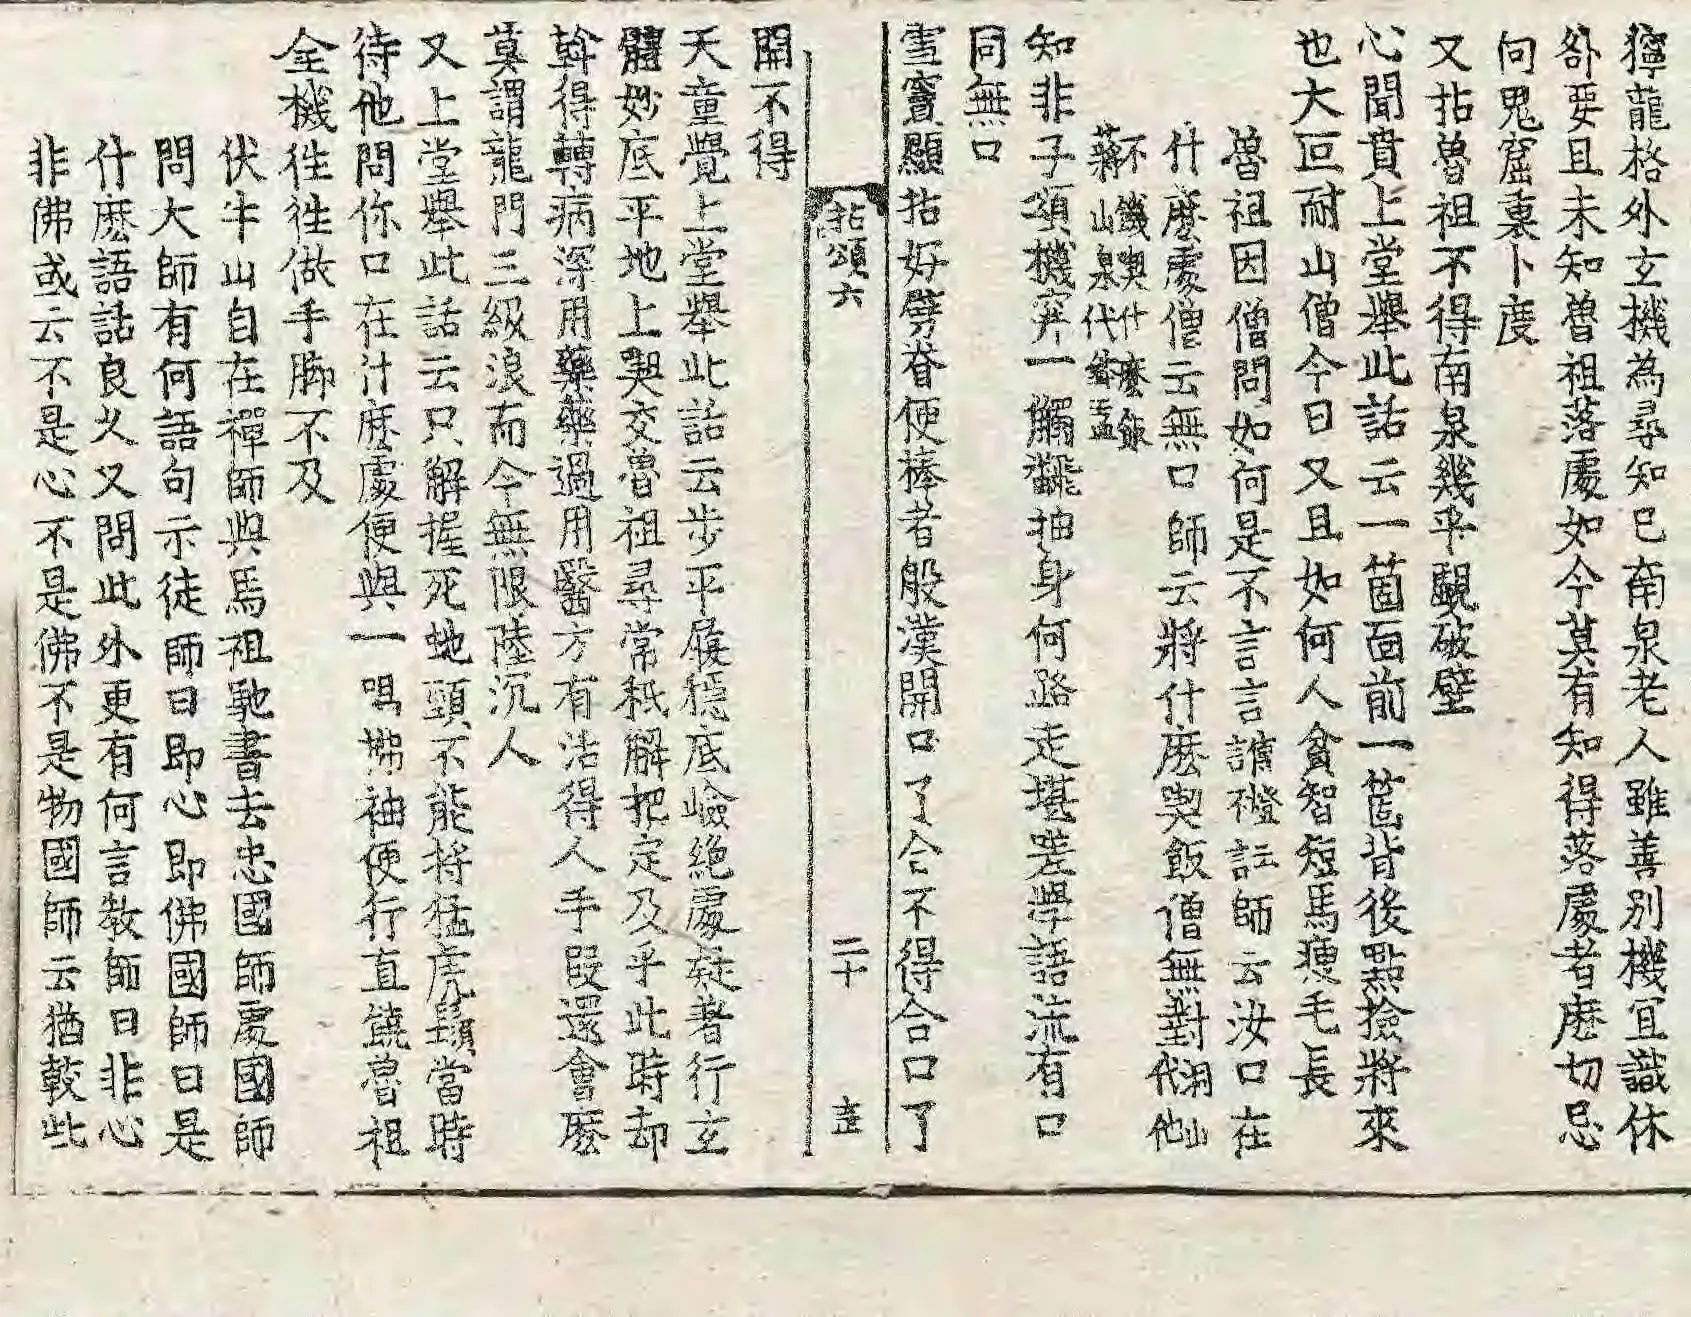 獰龍格外玄機為尋知已南泉老人雖善別機宜識休
咎要且未知魯祖落處如今莫有知得落處者麽切忌
向鬼窟裏卜度
又拈魯祖不得南泉幾乎覷破壁
心聞賁上堂擧此話云一箇面前一箇背後點撿將來
也大叵耐山僧今日又且如何人貪智短馬瘦毛長
魯祖因僧問如何是不言言譙磴訨師云汝口在
什麽處僧云無口師云將什麽喫飯僧無對洞山代他
不飢喫什麽飯
蔣山泉代鉢盂
知非子頌機穽一觸翻抽身何路走堪嗟學語流有口
同無口
雪竇顯拈好劈脊便棒者般漢開口了合不得合口了
拈頌六 二十
開不得
天童覺上堂擧此話云步平履穩底嶮絶處疑著行玄
體妙底平地上喫交魯祖尋常秖解把定及乎此時却
斡得轉病深用藥藥過用醫方有活得人手段還會麽
莫謂龍門三級浪而今無限陸沉人
又上堂擧此話云只解握死虵頭不能捋猛虎鬚當時
待他問你口在什麽處便與一喝拂袖便行直饒魯祖
全機徃徃做手脚不及
伏牛山自在禪師與馬祖馳書去忠國師處國師
問大師有何語句示徒師曰即心即佛國師曰是
什麽語話良久又問此外更有何言教師曰非心
非佛或云不是心不是佛不是物國師云猶較些